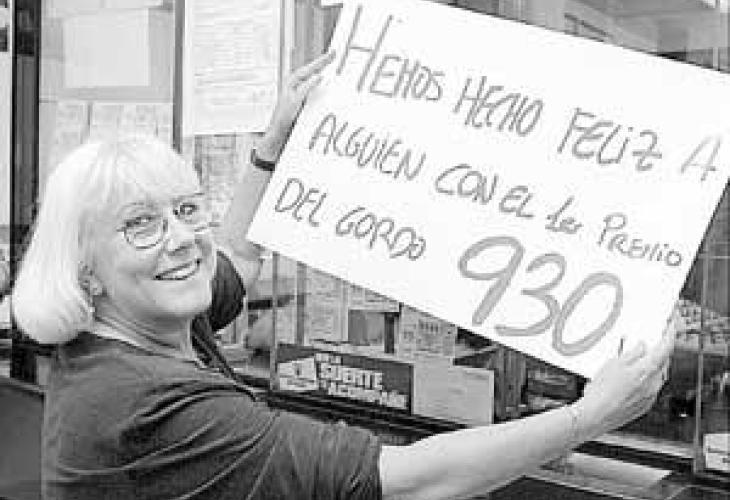 HEMOS HECHO FELIZ A
ALGUIEN CON EL 1er PREMIO
DEL GORDO 930
SUERTE